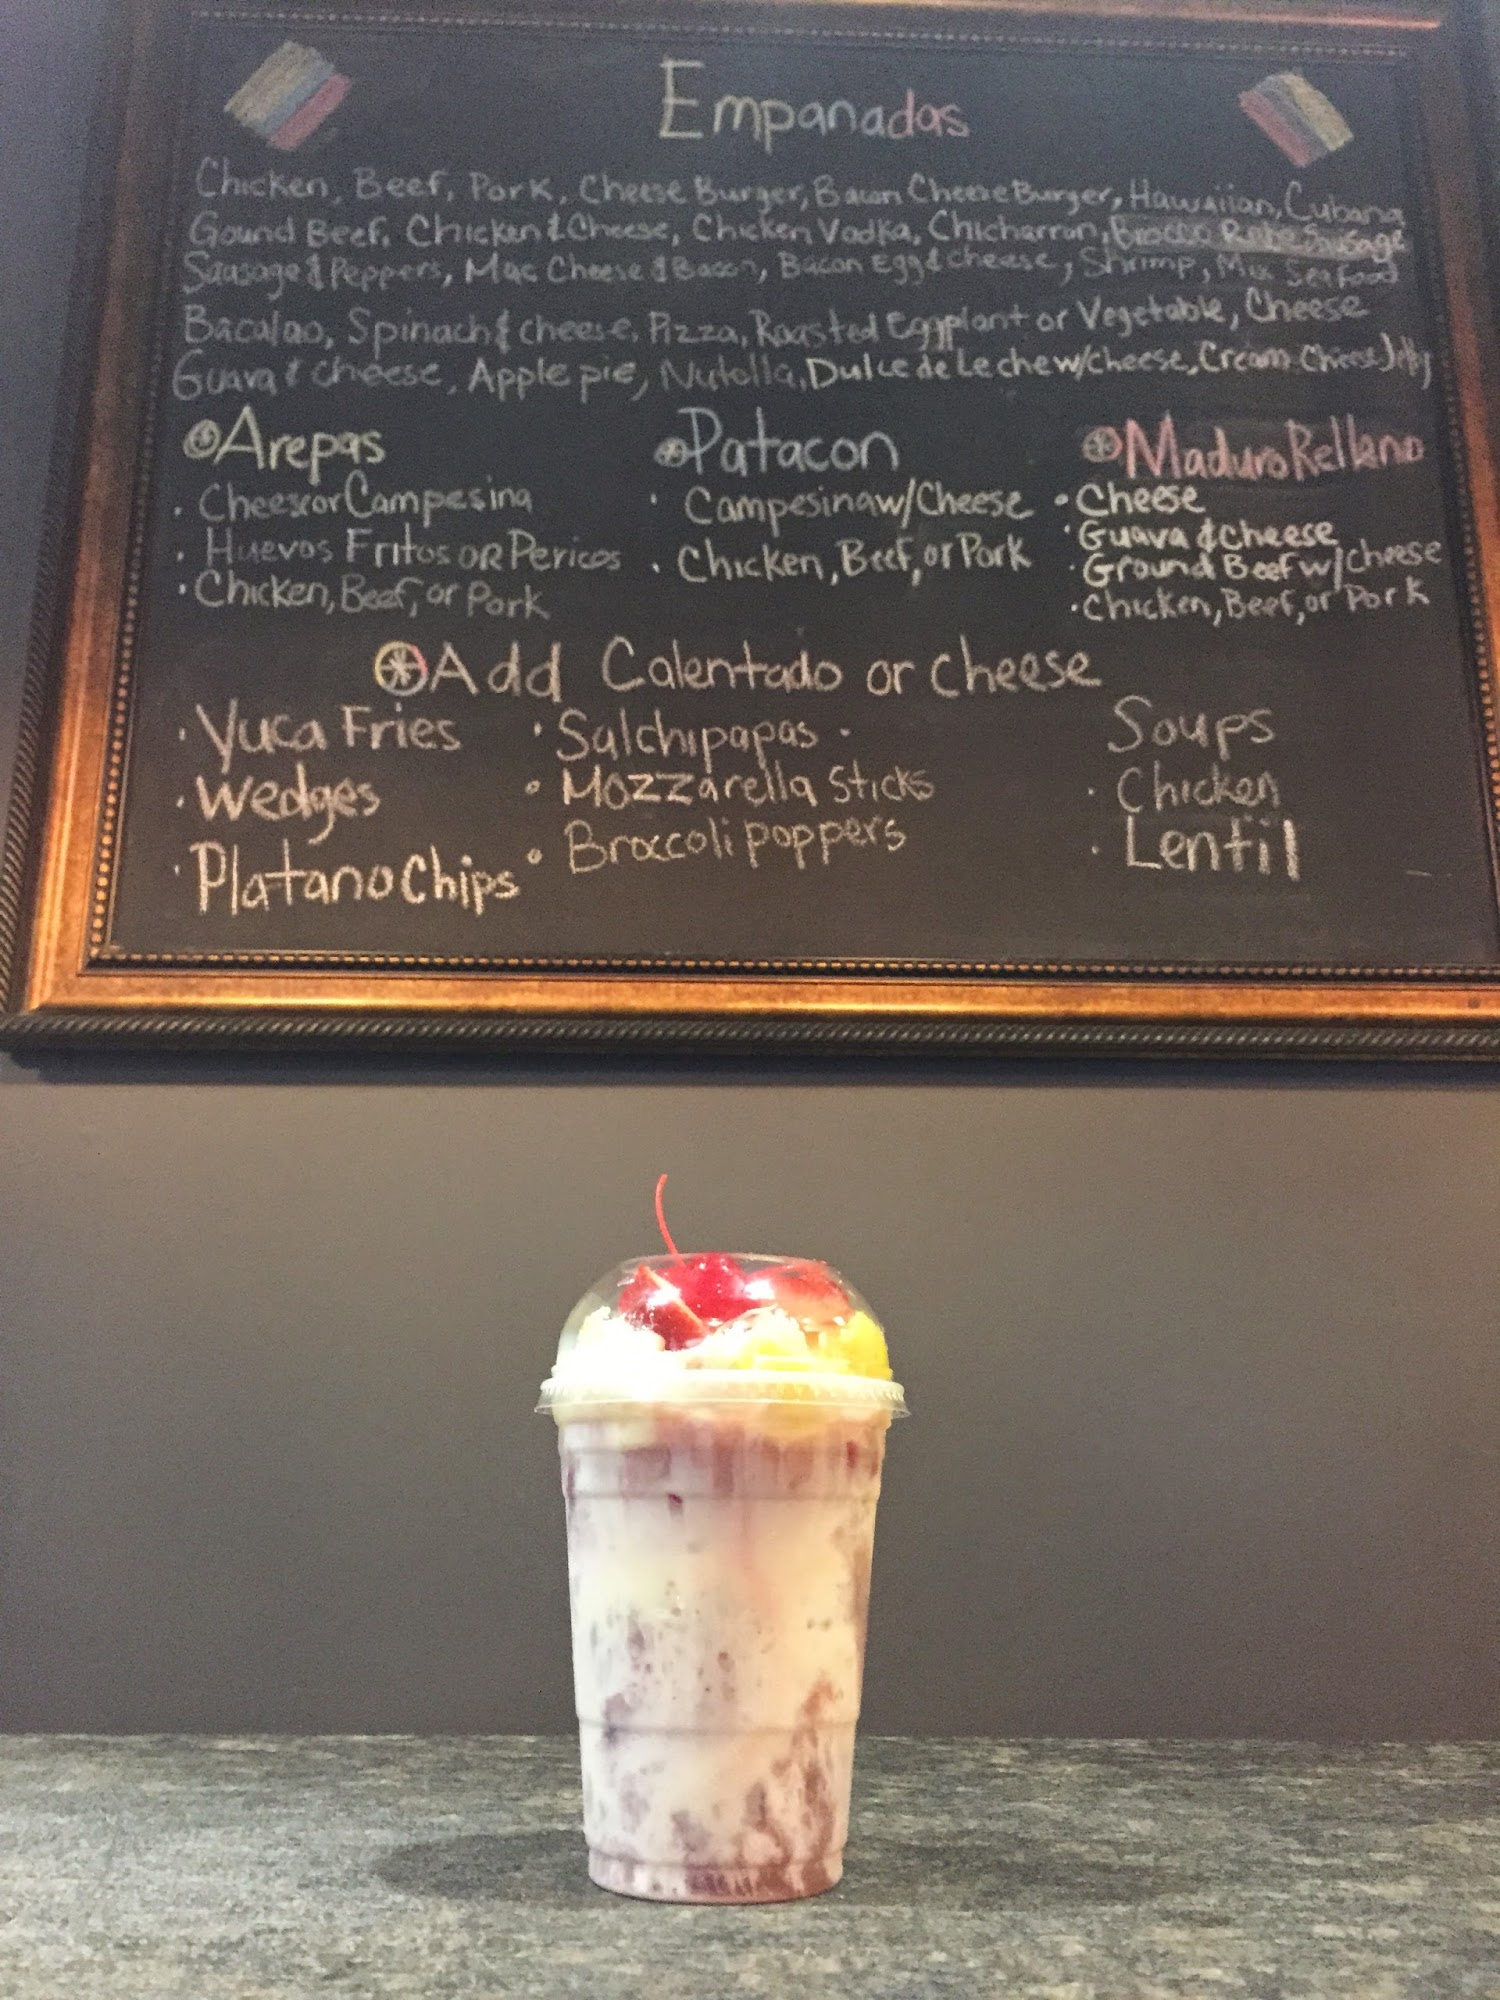 Empanadas
Chicken, Beef, Pork, Cheese Burger, Bacon Cheese Burger, Hawaiian, Cubana
Gound Beef, Chicken & Cheese, Chicken Vodka, Chicharron, Brocco Rabe Sausage
Sausage & Peppers, Mac Cheese & Bacon, Bacon Egg & cheese, Shrimp, Mix Seafood
Bacalao, Spinach & cheese, Pizza, Roasted Eggplant or Vegetable, Cheese
Guava & cheese, Apple pie, Nutella, Dulce de Leche w/cheese, Cream Cheese Jelly
Arepas
· Cheese or Campesina
· Huevos Fritos OR Pericos
· Chicken, Beef, or Pork
Patacon
· Campesina w/ Cheese
· Chicken, Beef, or Pork
Maduro Relleno
· Cheese
· Guava & Cheese
· Ground Beef w/ Cheese
· Chicken, Beef, or Pork
Add Calentado or cheese
· Yuca Fries
· Wedges
· Platano Chips
· Salchipapas ·
· Mozzarella Sticks
· Broccoli poppers
Soups
· Chicken
· Lentil